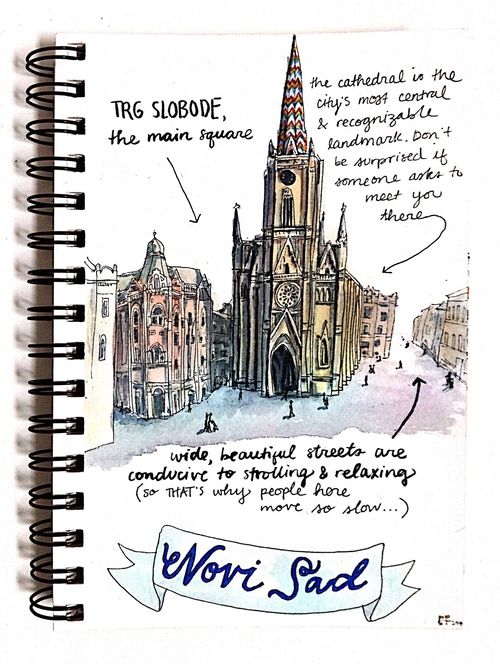 TRG SLOBODE,
the main square
the cathedral is the
city's most central
& recognizable
landmark. Don't
be surprised if
someone asks to
meet you
there
wide, beautiful streets are
conducive to strolling & relaxing
(so THAT'S why people here
move so slow...)
Novi Sad